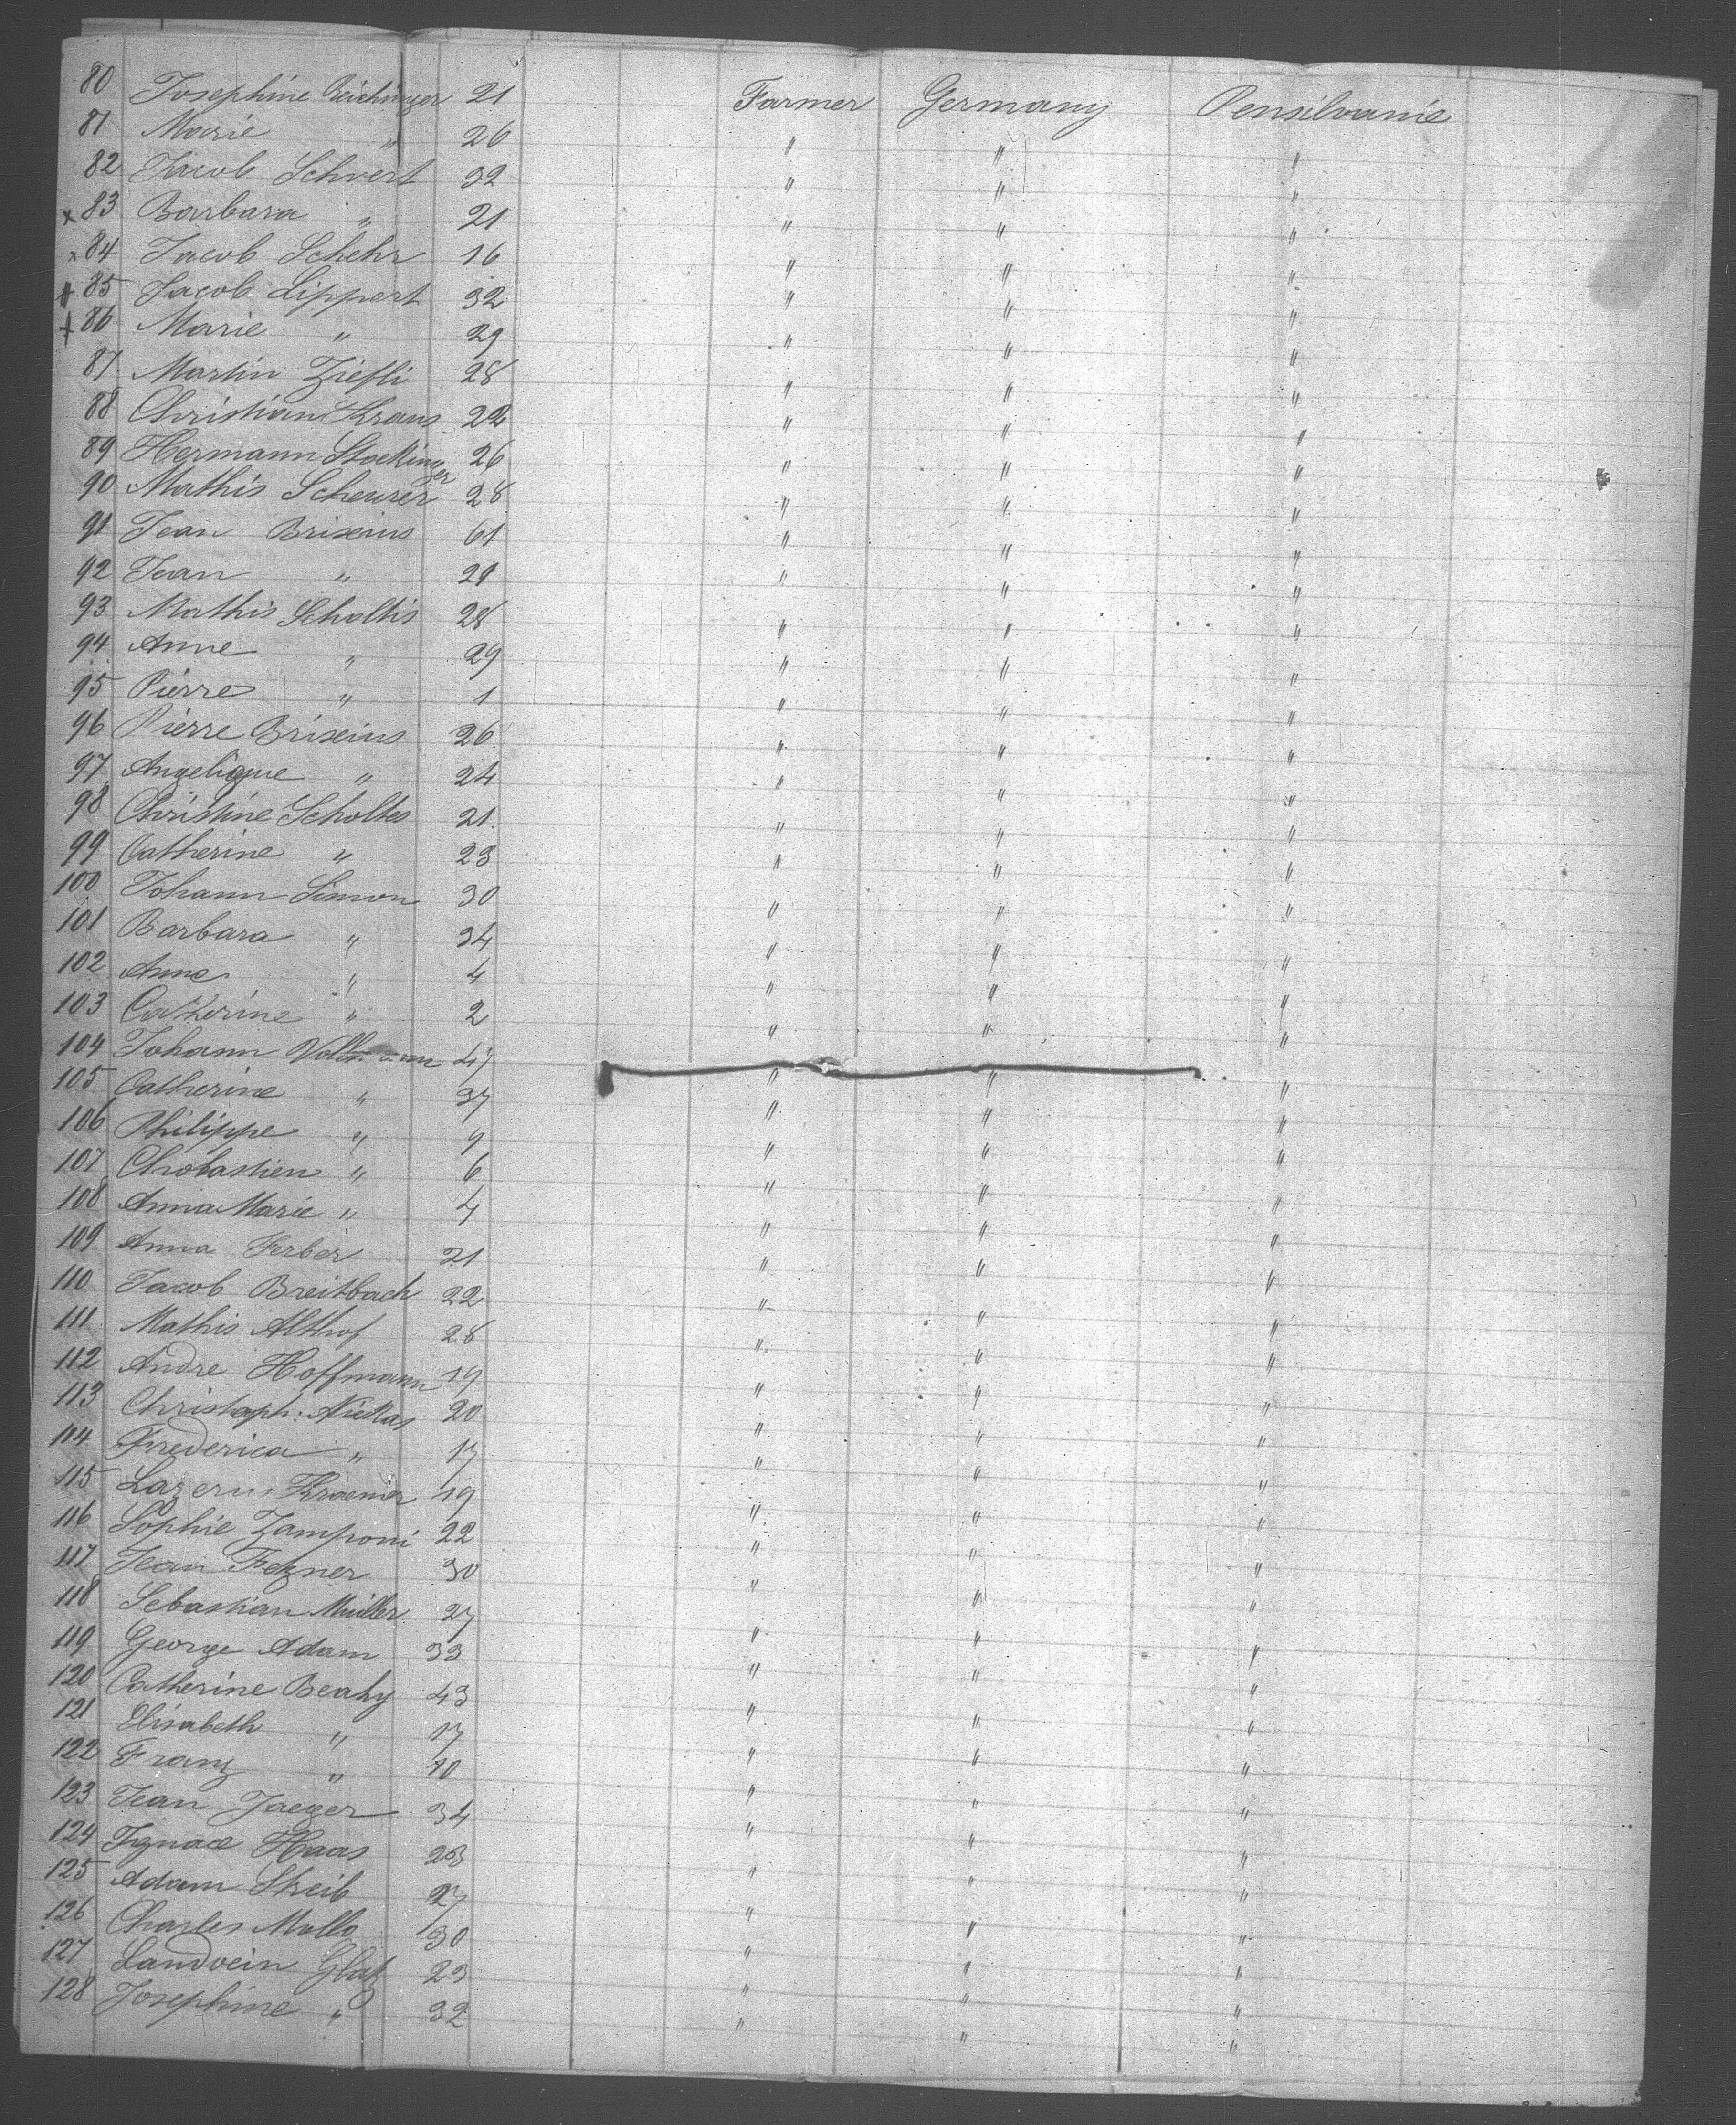 80 Josephine Reichinger 21 Farmer Germany Pensilvanie
81 Marie " 26 " " "
82 Jacob Schvert 32 " " "
x 83 Barbara " 21 " " "
x 84 Jacob Schehr 16 " " "
+ 85 Jacob Lippert 32 " " "
+ 86 Marie " 29 " " "
87 Martin Ziefli 28 " " "
88 Christian Kraus 22 " " "
89 Hermann Stockinger 26 " " "
90 Mathis Scheurer 28 " " "
91 Jean Brixius 61 " " "
92 Jean " 29 " " "
93 Mathis Scholtis 28 " " "
94 Anne " 29 " " "
95 Pierre " 1 " " "
96 Pierre Brixius 26 " " "
97 Angelique " 24 " " "
98 Christine Scholtes 21 " " "
99 Catherine " 23 " " "
100 Johann Simon 30 " " "
101 Barbara " 34 " " "
102 Anna " 4 " " "
103 Catherine " 2 " " "
104 Johann 47 " " "
105 Catherine " 37 " " "
106 Philippe " 9 " " "
107 Chrobastien " 6 " " "
108 Anna Marie " 4 " " "
109 Anna Ferber 21 " " "
110 Jacob Breitbach 22 " " "
111 Mathis Althof 28 " " "
112 Andre Hoffmann 19 " " "
113 Christoph: Nicklas 20 " " "
114 Frederica " 17 " " "
115 Lazerus Kraemer 19 " " "
116 Sophie Zamponi 22 " " "
117 Jean Fezner 30 " " "
118 Sebastian Müller 27 " " "
119 George Adam 33 " " "
120 Catherine Beahy 43 " " "
121 Elisabeth " 17 " " "
122 Franz " 10 " " "
123 Jean Jaeger 34 " " "
124 Ignace Haas 23 " " "
125 Adam Streib 27 " " "
126 Charles Mallo 30 " " "
127 Landvein Glatz 23 " " "
128 Josephine " 32 " " "